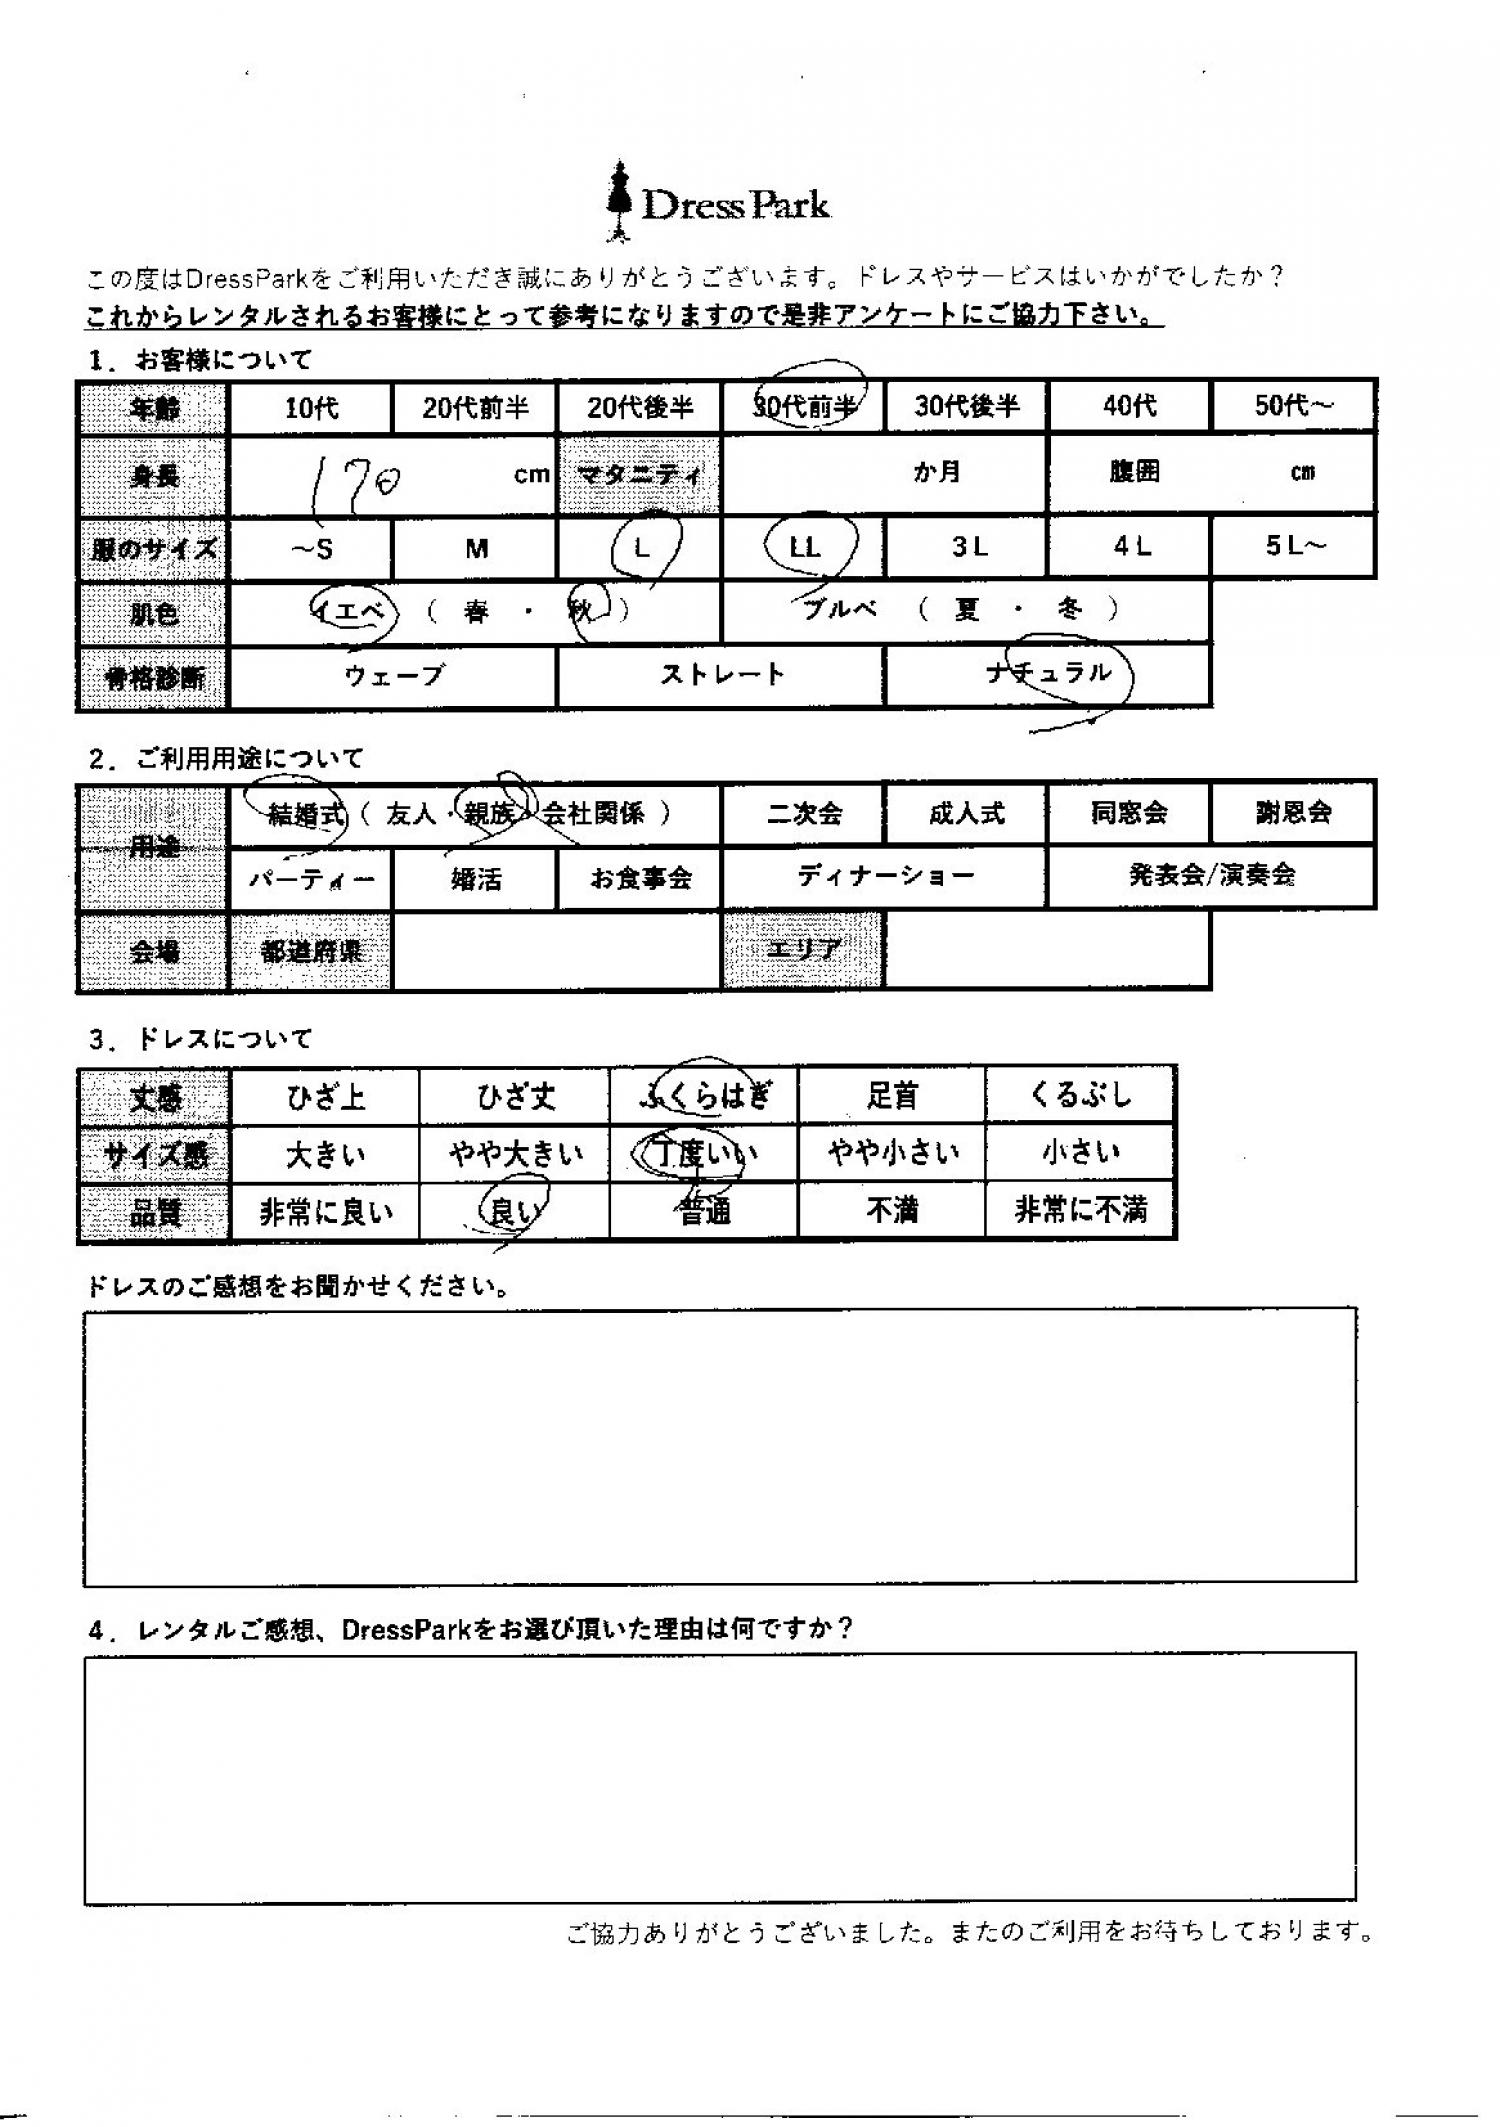 DressPark
この度はDressParkをご利用いただき誠にありがとうございます。ドレスやサービスはいかがでしたか？
これからレンタルされるお客様にとって参考になりますので是非アンケートにご協力下さい。
1．お客様について
年齢 10代 20代前半 20代後半 30代前半 30代後半 40代 50代～
身長 170 cm マタニティ か月 腹囲 cm
服のサイズ ～S M L LL 3L 4L 5L～
肌色 イエベ （ 春 ・ 秋 ） ブルベ （ 夏 ・ 冬 ）
骨格診断 ウェーブ ストレート ナチュラル
2．ご利用用途について
用途 結婚式（ 友人・親族・会社関係 ） 二次会 成人式 同窓会 謝恩会
パーティー 婚活 お食事会 ディナーショー 発表会/演奏会
会場 都道府県 エリア
3．ドレスについて
丈感 ひざ上 ひざ丈 ふくらはぎ 足首 くるぶし
サイズ感 大きい やや大きい 丁度いい やや小さい 小さい
品質 非常に良い 良い 普通 不満 非常に不満
ドレスのご感想をお聞かせください。
4．レンタルご感想、DressParkをお選び頂いた理由は何ですか？
ご協力ありがとうございました。またのご利用をお待ちしております。